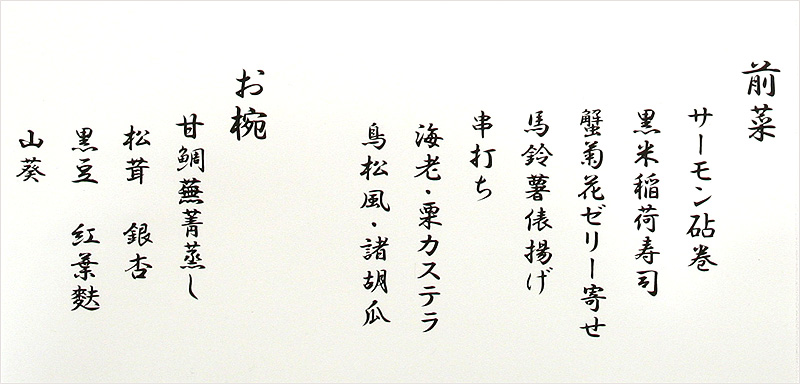 前菜
サーモン砧巻
黒米稲荷寿司
蟹菊花ゼリー寄せ
馬鈴薯俵揚げ
串打ち
海老・栗カステラ
鳥松風・諸胡瓜
お椀
甘鯛蕪菁蒸し
松茸　銀杏
黒豆　紅葉麩
山葵